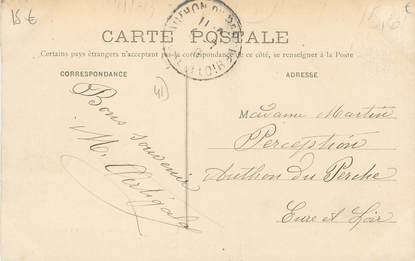 15 €
CARTE POSTALE
Certains pays étrangers n'acceptant pas la correspondance de ce côté, se renseigner à la Poste
CORRESPONDANCE
ADRESSE
41
Bons souvenir
M.
Madame Martin
Perception
Authon du Perche
Eure et Loir